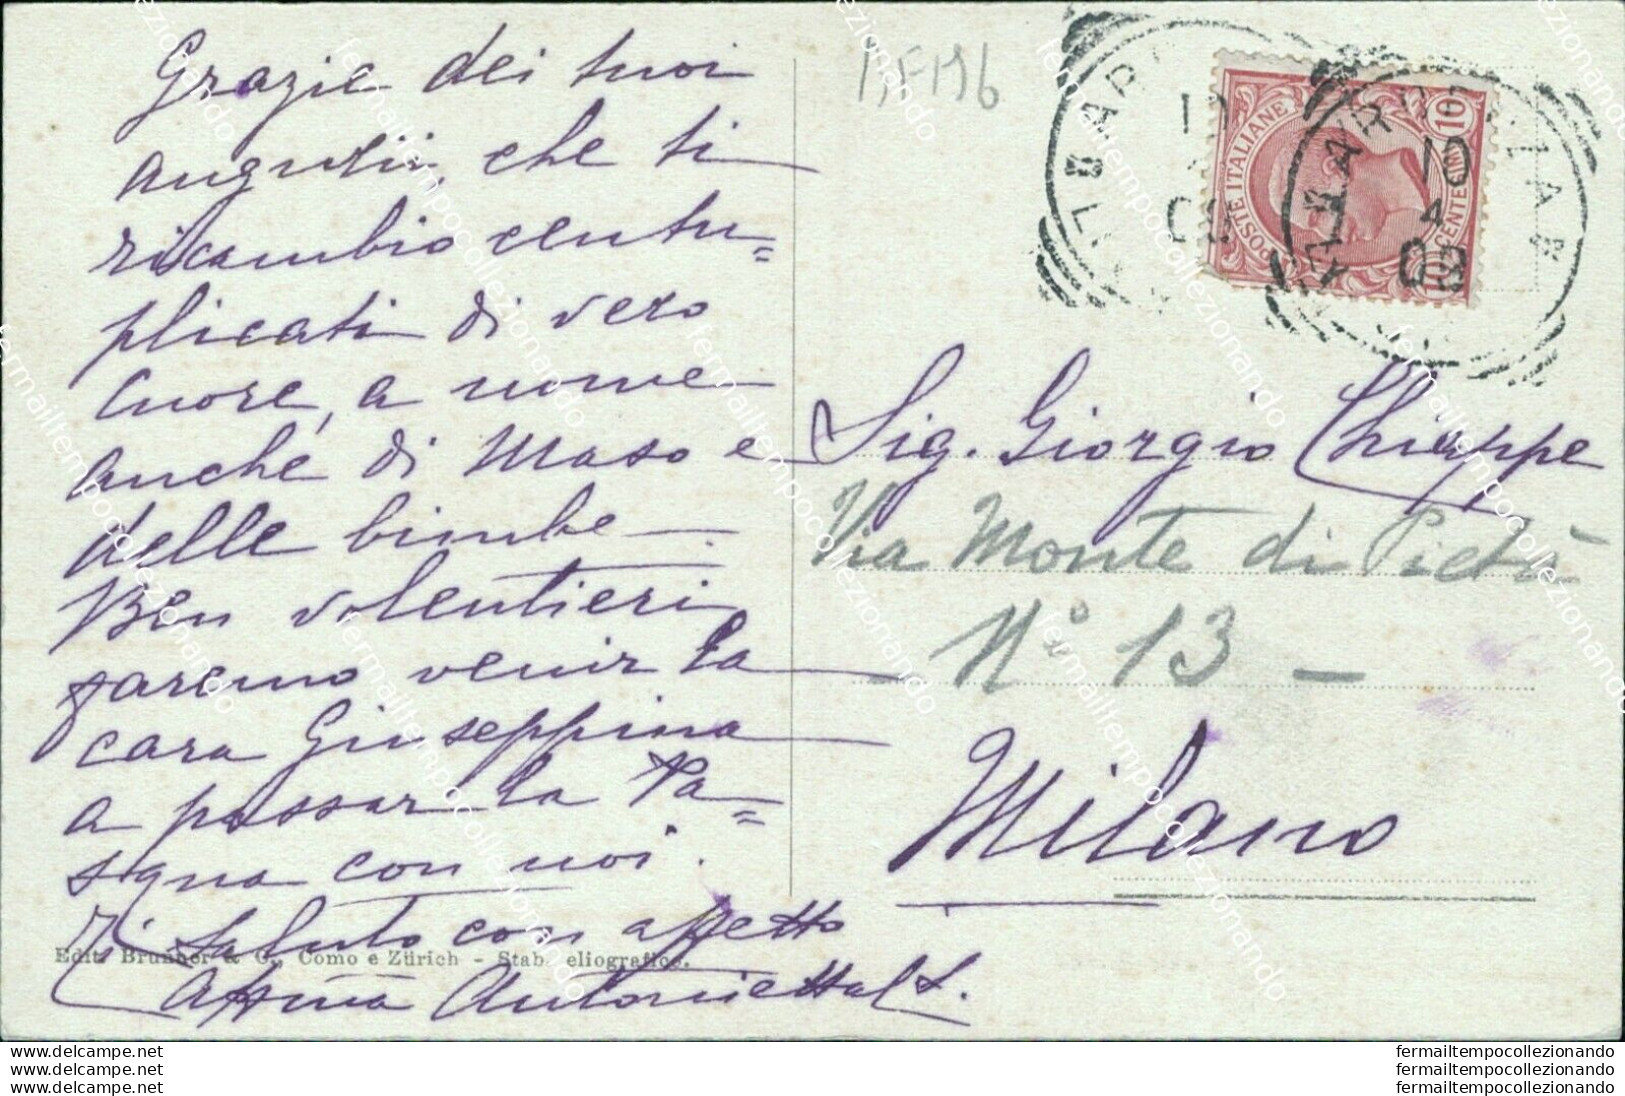 Grazie dei tuoi
augurii, che ti
ricambio centu=
plicati di vero
cuore, a nome
anche di Maso e
delle bimbe.
Ben volentieri
saremo venir la
cara Giuseppina
a passar la Pa=
squa con noi.
Ti saluto con affetto
Affma Antonietta
Edit. Brunner & C., Como e Zürich - Stab. eliografico.
B,F196
POSTE ITALIANE
10
CENTESIMI
10
10
4
09
Sig. Giorgio Chiappe
Via Monte di Pietà
N° 13 -
Milano
www.delcampe.net
www.delcampe.net
www.delcampe.net
fermailtempocollezionando
fermailtempocollezionando
fermailtempocollezionando